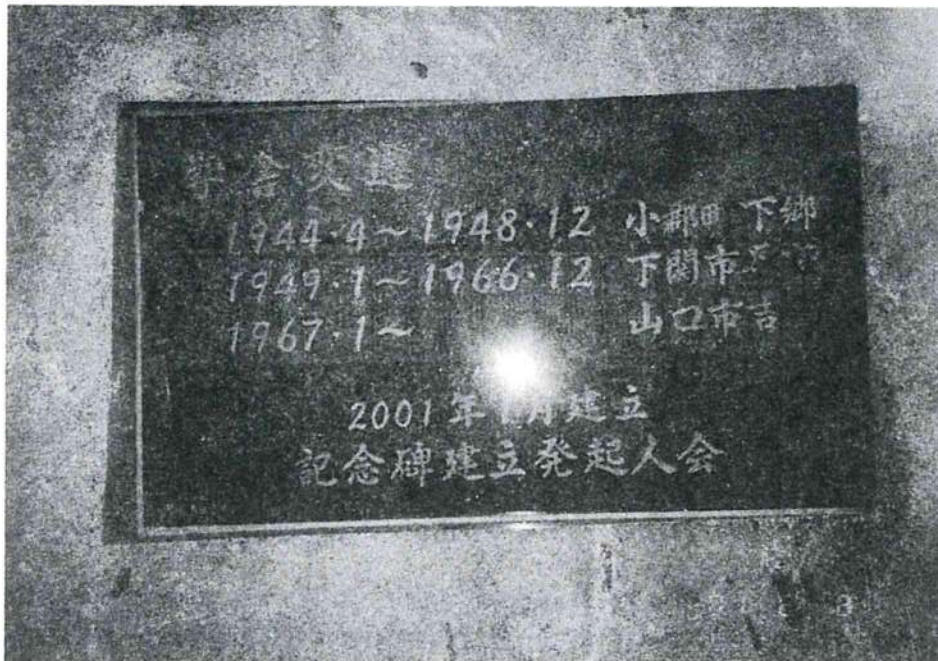 学舎変遷
1944・4～1948・12 小郡町 下郷
1949・1～1966・12 下関市
1967・1～ 山口市吉
2001年1月建立
記念碑建立発起人会